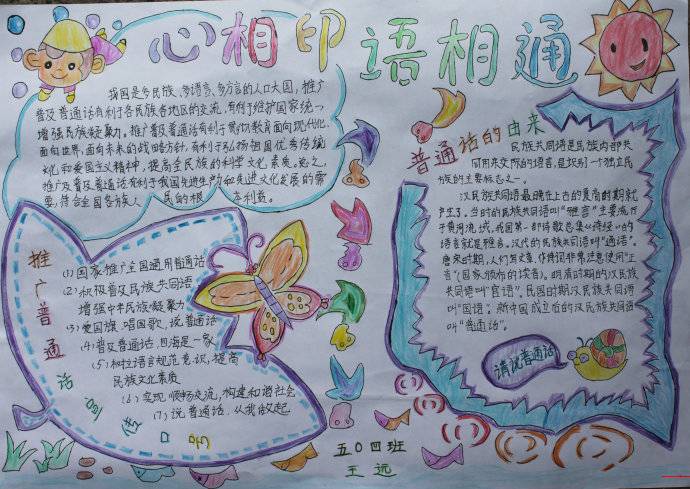 心相印 语相通
我国是多民族、多语言、多方言的人口大国，推广
普及普通话有利于各民族各地区的交流，有利于维护国家统一
增强民族凝聚力。推广普及普通话有利于贯彻教育面向现代化
面向世界，面向未来的战略方针，有利于弘扬祖国优秀传统
文化和爱国主义精神，提高全民族的科学文化素质。总之，
推广及普及普通话有利于我国先进生产力和先进文化发展的需
要，符合全国各族人民的根本利益。
推广普通话宣传口号
(1)国家推广全国通用普通话
(2)积极普及民族共同语
增强中华民族凝聚力
(3)爱国旗，唱国歌，说普通话
(4)普及普通话，四海是一家
(5)树立语言规范意识，提高
民族文化素质
(6)实现顺畅交流，构建和谐社会
(7)说普通话，从我做起
普通话的由来
民族共同语是民族内部共
同用来交际的语言，是识别一个独立民
族的主要标志之一。
汉民族共同语最晚在上古的夏商时期就
产生了。当时的民族共同语叫"雅言"主要流行
于黄河流域，我国第一部诗歌总集《诗经》的
语言就是雅言。汉代的民族共同语叫"通语"。
唐宋时期，人们写文章、作诗词非常注意使用"正
音"(国家颁布的读音)。明清时期的汉民族
共同语叫"官话"，民国时期汉民族共同语
叫"国语"。新中国成立后的汉民族共同语
叫"普通话"。
请说普通话
五〇四班
王远